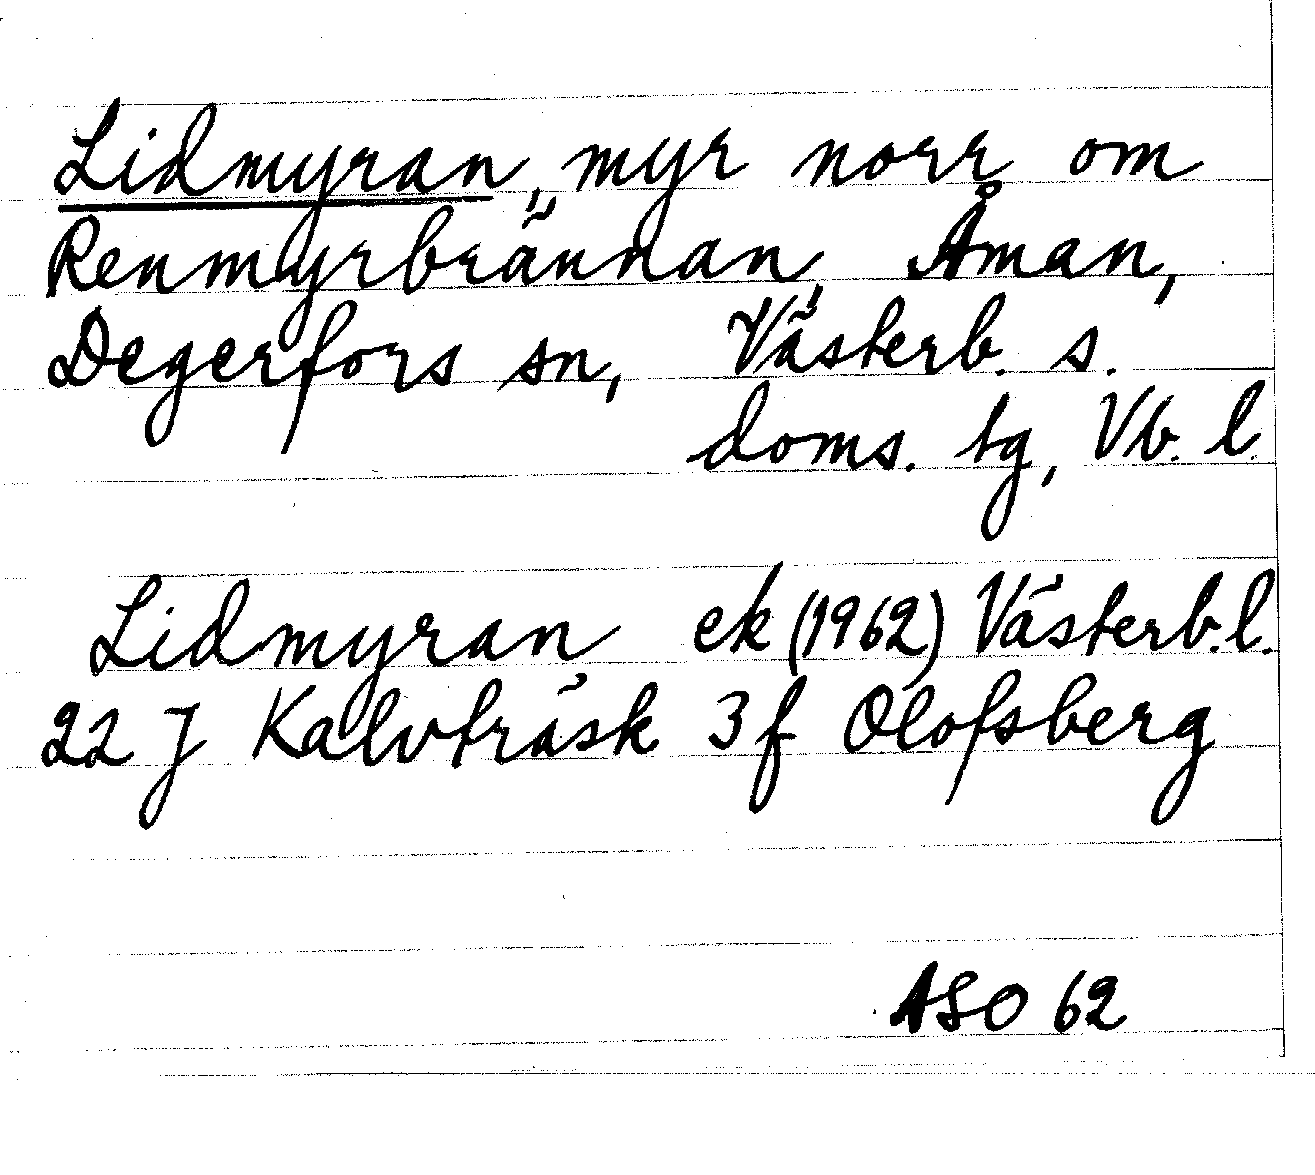 Lidmyran, myr norr om
Renmyrbrännan, Åman,
Degerfors sn, Västerb. s.
doms. tg, Vb. l.
Lidmyran ek (1962) Västerb. l.
22 J Kalvträsk 3 f Olofsberg
ASO 62